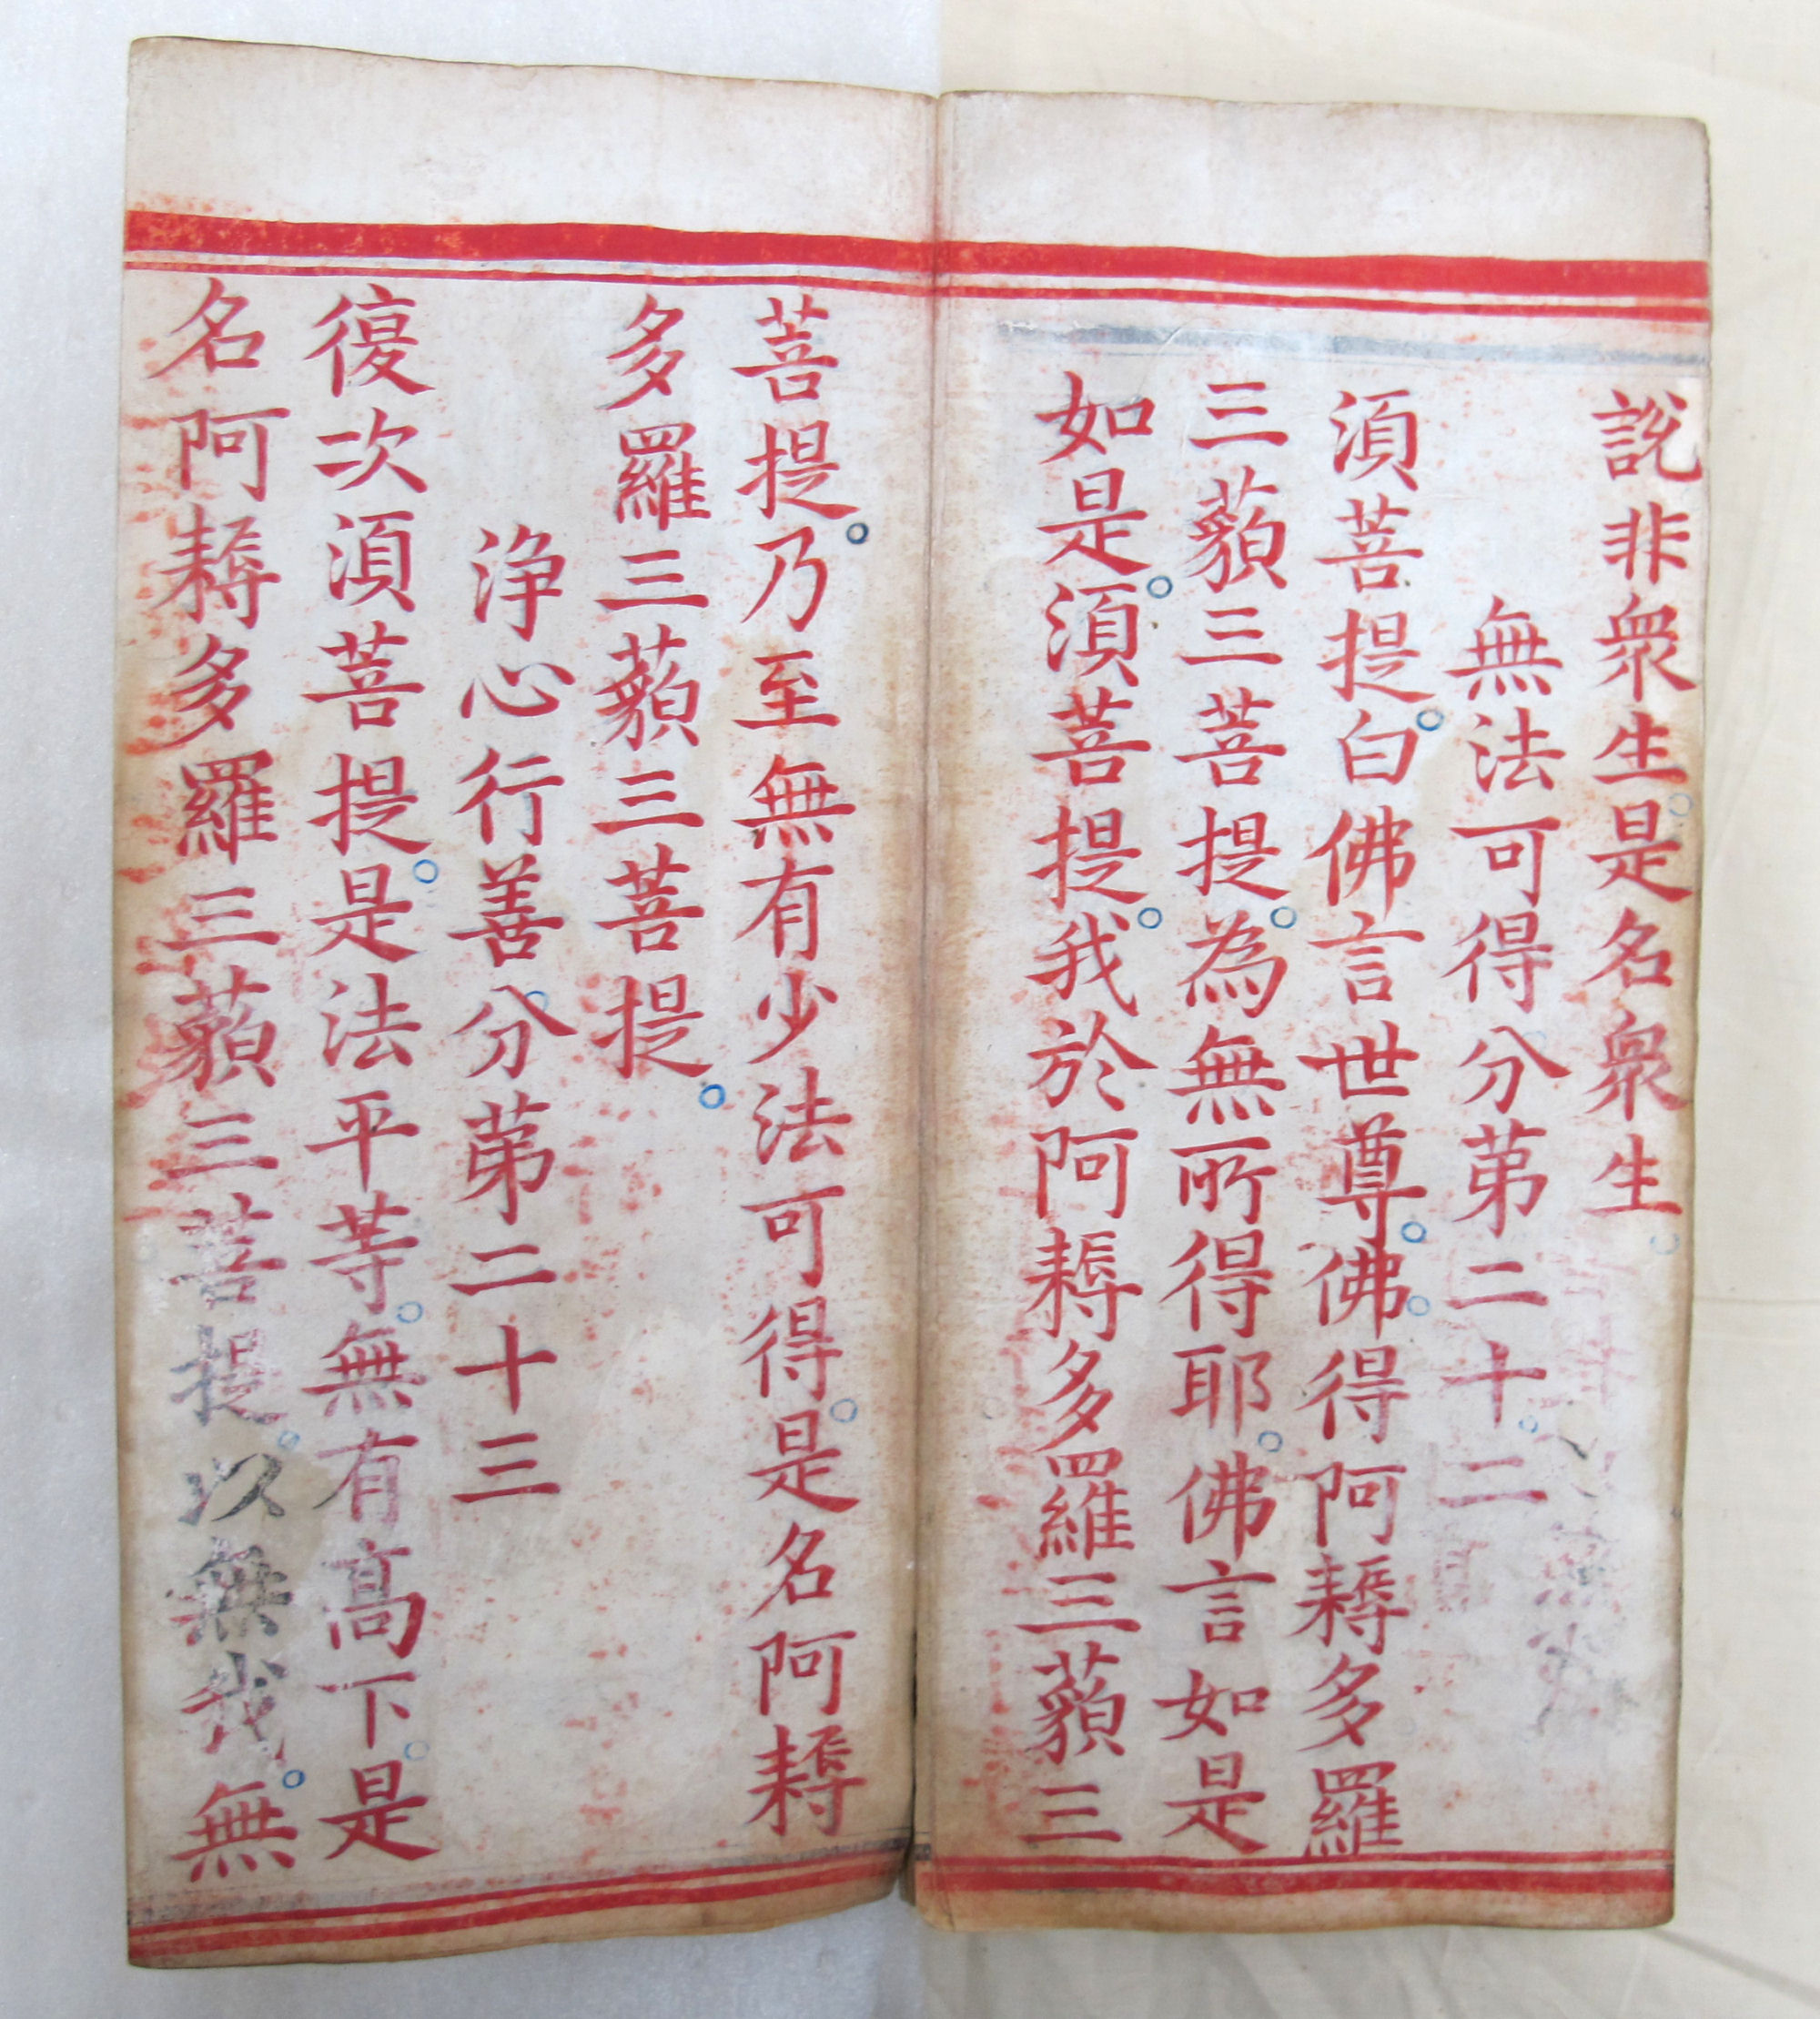 説非衆生。是名衆生。
無法可得分第二十。二
湏菩提。白佛言世尊。佛。得阿耨多羅
三藐三菩提。為無所得耶。佛言如是
如是。湏菩提。我於阿耨多羅三藐三
菩提。乃至無有少法可得。是名阿耨
多羅三藐三菩提。
淨心行善。分苐二十三
復次湏菩提。是法平等。無有高下。是
名阿耨多羅三藐三菩提。以無我。無